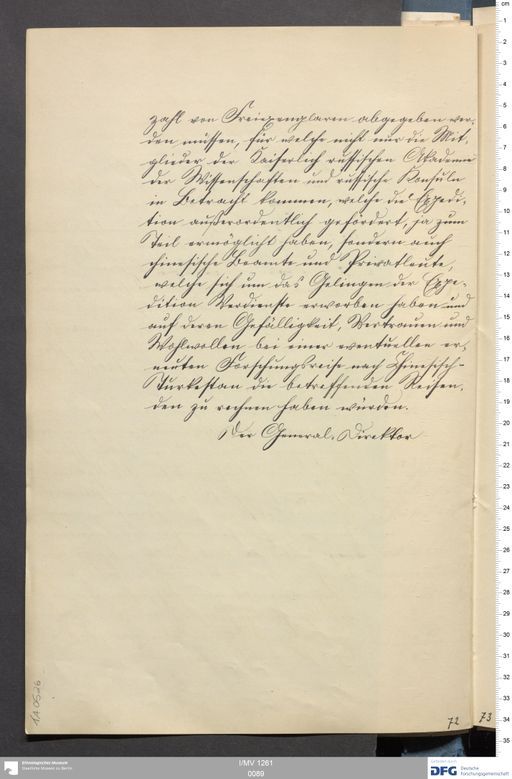 zahl von Freiexemplaren abgegeben wer-
den müssen, für welche nicht nur die Mit-
glieder der Kaiserlich russischen Akademie
der Wissenschaften und russische Konsuln
in Betracht kommen, welche die Expedi-
tion außerordentlich gefördert, ja zum
Teil ermöglicht haben, sondern auch
chinesische Beamte und Privatleute,
welche sich um das Gelingen der Expe-
dition Verdienste erworben haben und
auf deren Gefälligkeit, Vertrauen und
Wohlwollen bei einer eventuellen er-
neuten Forschungsreise nach Chinesisch-
Turkestan die betreffenden Reisen-
den zu rechnen haben würden.
Der General-Direktor
1A0526
72
73
Ethnologisches Museum
Staatliche Museen zu Berlin
I/MV 1261
0089
DFG
Deutsche
Forschungsgemeinschaft